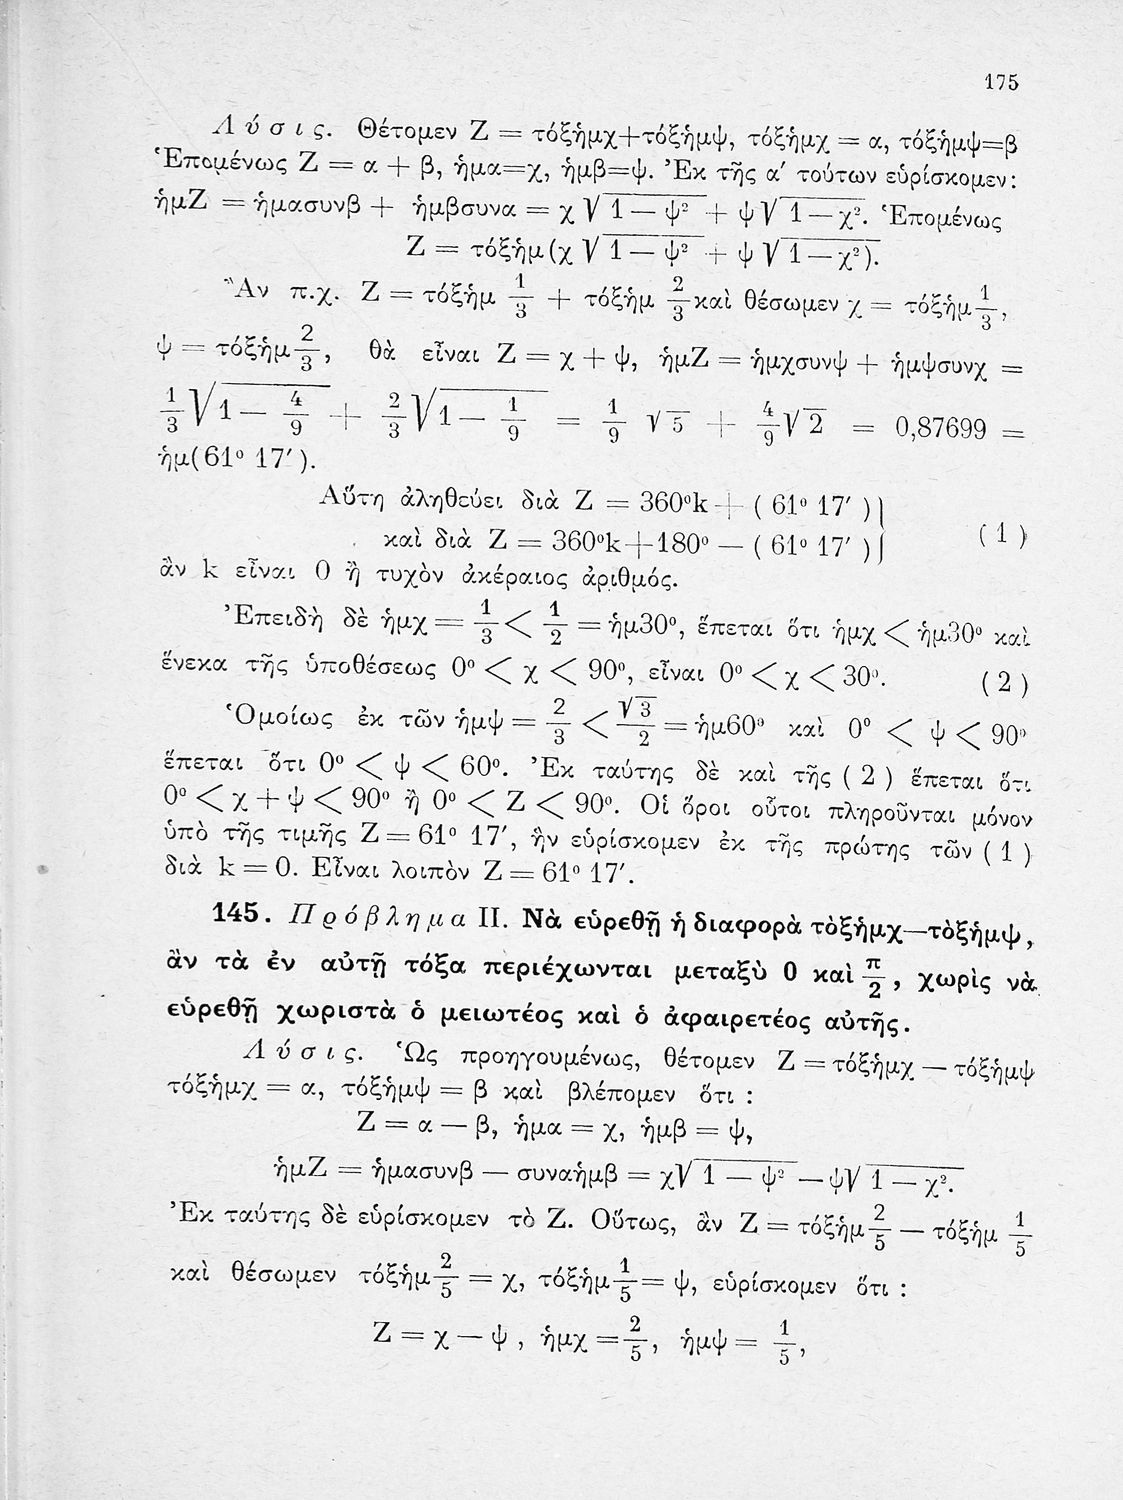 175
Λύσις. Θέτομεν Ζ = τόξἡμχ+τόξἡμψ, τόξἡμχ = α, τόξἡμψ=β
Ἑπομένως Ζ = α + β, ἡμα=χ, ἡμβ=ψ. Ἐκ τῆς α΄ τούτων εὑρίσκομεν:
ἡμΖ = ἡμασυνβ + ἡμβσυνα = χ √1 — ψ² + ψ√1 — χ². Ἑπομένως
Ζ = τόξἡμ (χ √1 — ψ² + ψ √1 — χ²).
Ἂν π.χ. Ζ = τόξἡμ 1/3 + τόξἡμ 2/3 καὶ θέσωμεν χ = τόξἡμ 1/3,
ψ = τόξἡμ 2/3, θὰ εἶναι Ζ = χ + ψ, ἡμΖ = ἡμχσυνψ + ἡμψσυνχ =
1/3 √1 — 4/9 + 2/3 √1 — 1/9 = 1/9 √5 + 4/9 √2 = 0,87699 =
ἡμ(61° 17′).
Αὕτη ἀληθεύει διὰ Ζ = 360°k + ( 61° 17′ )
καὶ διὰ Ζ = 360°k+180° — ( 61° 17′ ) } ( 1 )
ἂν k εἶναι 0 ἢ τυχὸν ἀκέραιος ἀριθμός.
Ἐπειδὴ δὲ ἡμχ = 1/3 < 1/2 = ἡμ30°, ἕπεται ὅτι ἡμχ < ἡμ30° καὶ
ἕνεκα τῆς ὑποθέσεως 0° < χ < 90°, εἶναι 0° < χ < 30°. ( 2 )
Ὁμοίως ἐκ τῶν ἡμψ = 2/3 < √3/2 = ἡμ60° καὶ 0° < ψ < 90°
ἕπεται ὅτι 0° < ψ < 60°. Ἐκ ταύτης δὲ καὶ τῆς ( 2 ) ἕπεται ὅτι
0° < χ + ψ < 90° ἢ 0° < Ζ < 90°. Οἱ ὅροι οὗτοι πληροῦνται μόνον
ὑπὸ τῆς τιμῆς Ζ = 61° 17′, ἣν εὑρίσκομεν ἐκ τῆς πρώτης τῶν ( 1 )
διὰ k = 0. Εἶναι λοιπὸν Ζ = 61° 17′.
145. Πρόβλημα ΙΙ. Νὰ εὑρεθῇ ἡ διαφορὰ τὸξἡμχ—τὸξἡμψ,
ἂν τὰ ἐν αὐτῇ τόξα περιέχωνται μεταξὺ 0 καὶ π/2, χωρὶς νὰ
εὑρεθῇ χωριστὰ ὁ μειωτέος καὶ ὁ ἀφαιρετέος αὐτῆς.
Λύσις. Ὡς προηγουμένως, θέτομεν Ζ = τόξἡμχ — τόξἡμψ
τόξἡμχ = α, τόξἡμψ = β καὶ βλέπομεν ὅτι :
Ζ = α — β, ἡμα = χ, ἡμβ = ψ,
ἡμΖ = ἡμασυνβ — συναἡμβ = χ√1 — ψ² — ψ√1 — χ².
Ἐκ ταύτης δὲ εὑρίσκομεν τὸ Ζ. Οὕτως, ἂν Ζ = τόξἡμ 2/5 — τόξἡμ 1/5
καὶ θέσωμεν τόξἡμ 2/5 = χ, τόξἡμ 1/5 = ψ, εὑρίσκομεν ὅτι :
Ζ = χ — ψ , ἡμχ = 2/5, ἡμψ = 1/5,